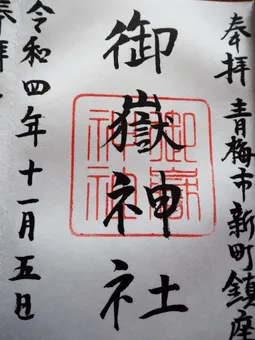 奉拝 青梅市新町鎮座
御嶽神社
令和四年十一月五日
奉拝